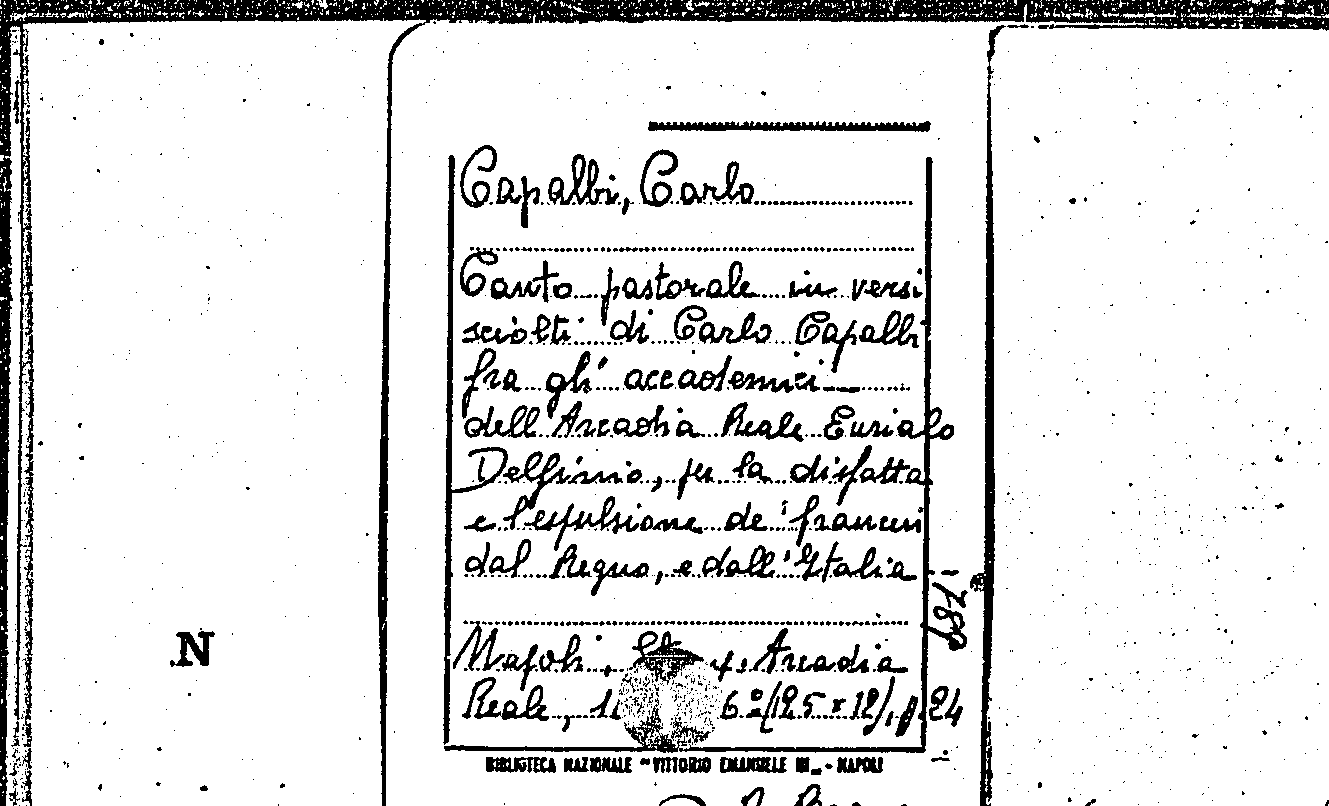 Capalbi, Carlo
Canto pastorale in versi
sciolti di Carlo Capalbi
fra gli' accademici
dell'Arcadia Reale Eurialo
Delfinio, per la disfatta
e l'espulsione de' francesi
dal Regno, e dall'Italia
Napoli, Arcadia
Reale, 6º (19,5 x 12), p. 24
BIBLIOTECA NAZIONALE "VITTORIO EMANUELE III" - NAPOLI
N